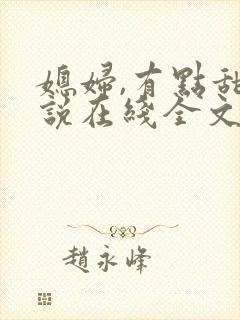 媳婦,有點甜
說在綫全文
趙永峰